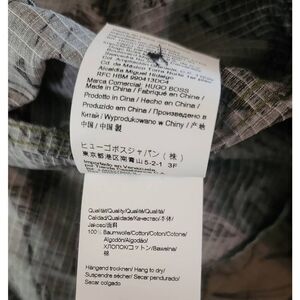 Alcaldía Miguel Hidalgo
RFC HBM 990413DC4
Marca Comercial: HUGO BOSS
Made in China / Fabriqué en China /
Prodotto in Cina / Hecho en China /
Produzido em China / Произведено в
Китай / Wyprodukowano w Chiny / 产地
中国 / 中国 製
ヒューゴボスジャパン (株)
東京都港区南青山5-2-1 3F
Importado en Venezuela
Qualität/Quality/Qualité/Qualità/
Calidad/Qualidade/Качество/
100% Baumwolle/Cotton/Coton/Cotone/
Algodón/Algodão/
ХЛОПОК/コットン/Bawełna/
棉
Hängend trocknen/ Hang to dry/
Suspendre sécher/ Secar pendurado/
Secar colgado